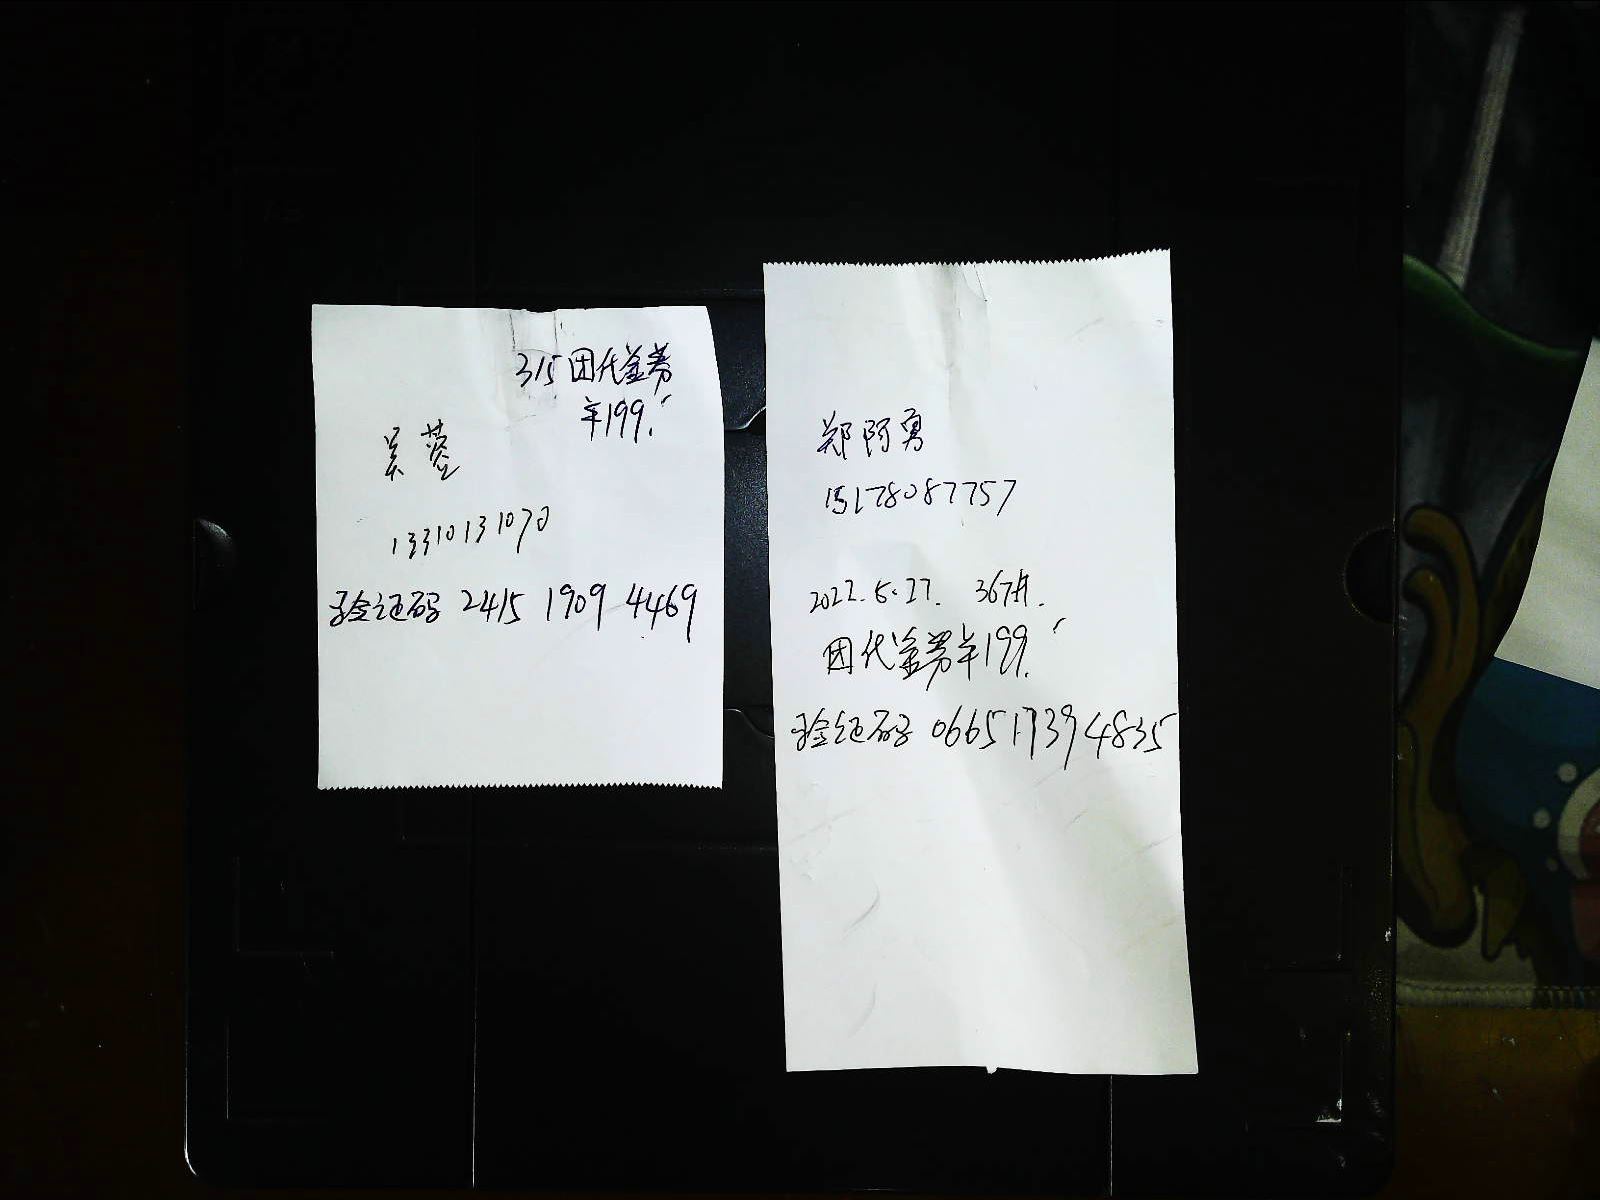 315团代金券
羊199.
吴蓉
13310131070
验证码 2415 1909 4469
郑阿勇
15178087757
2022.5.27. 367#.
团代金券羊199.
验证码 0665 1739 4835